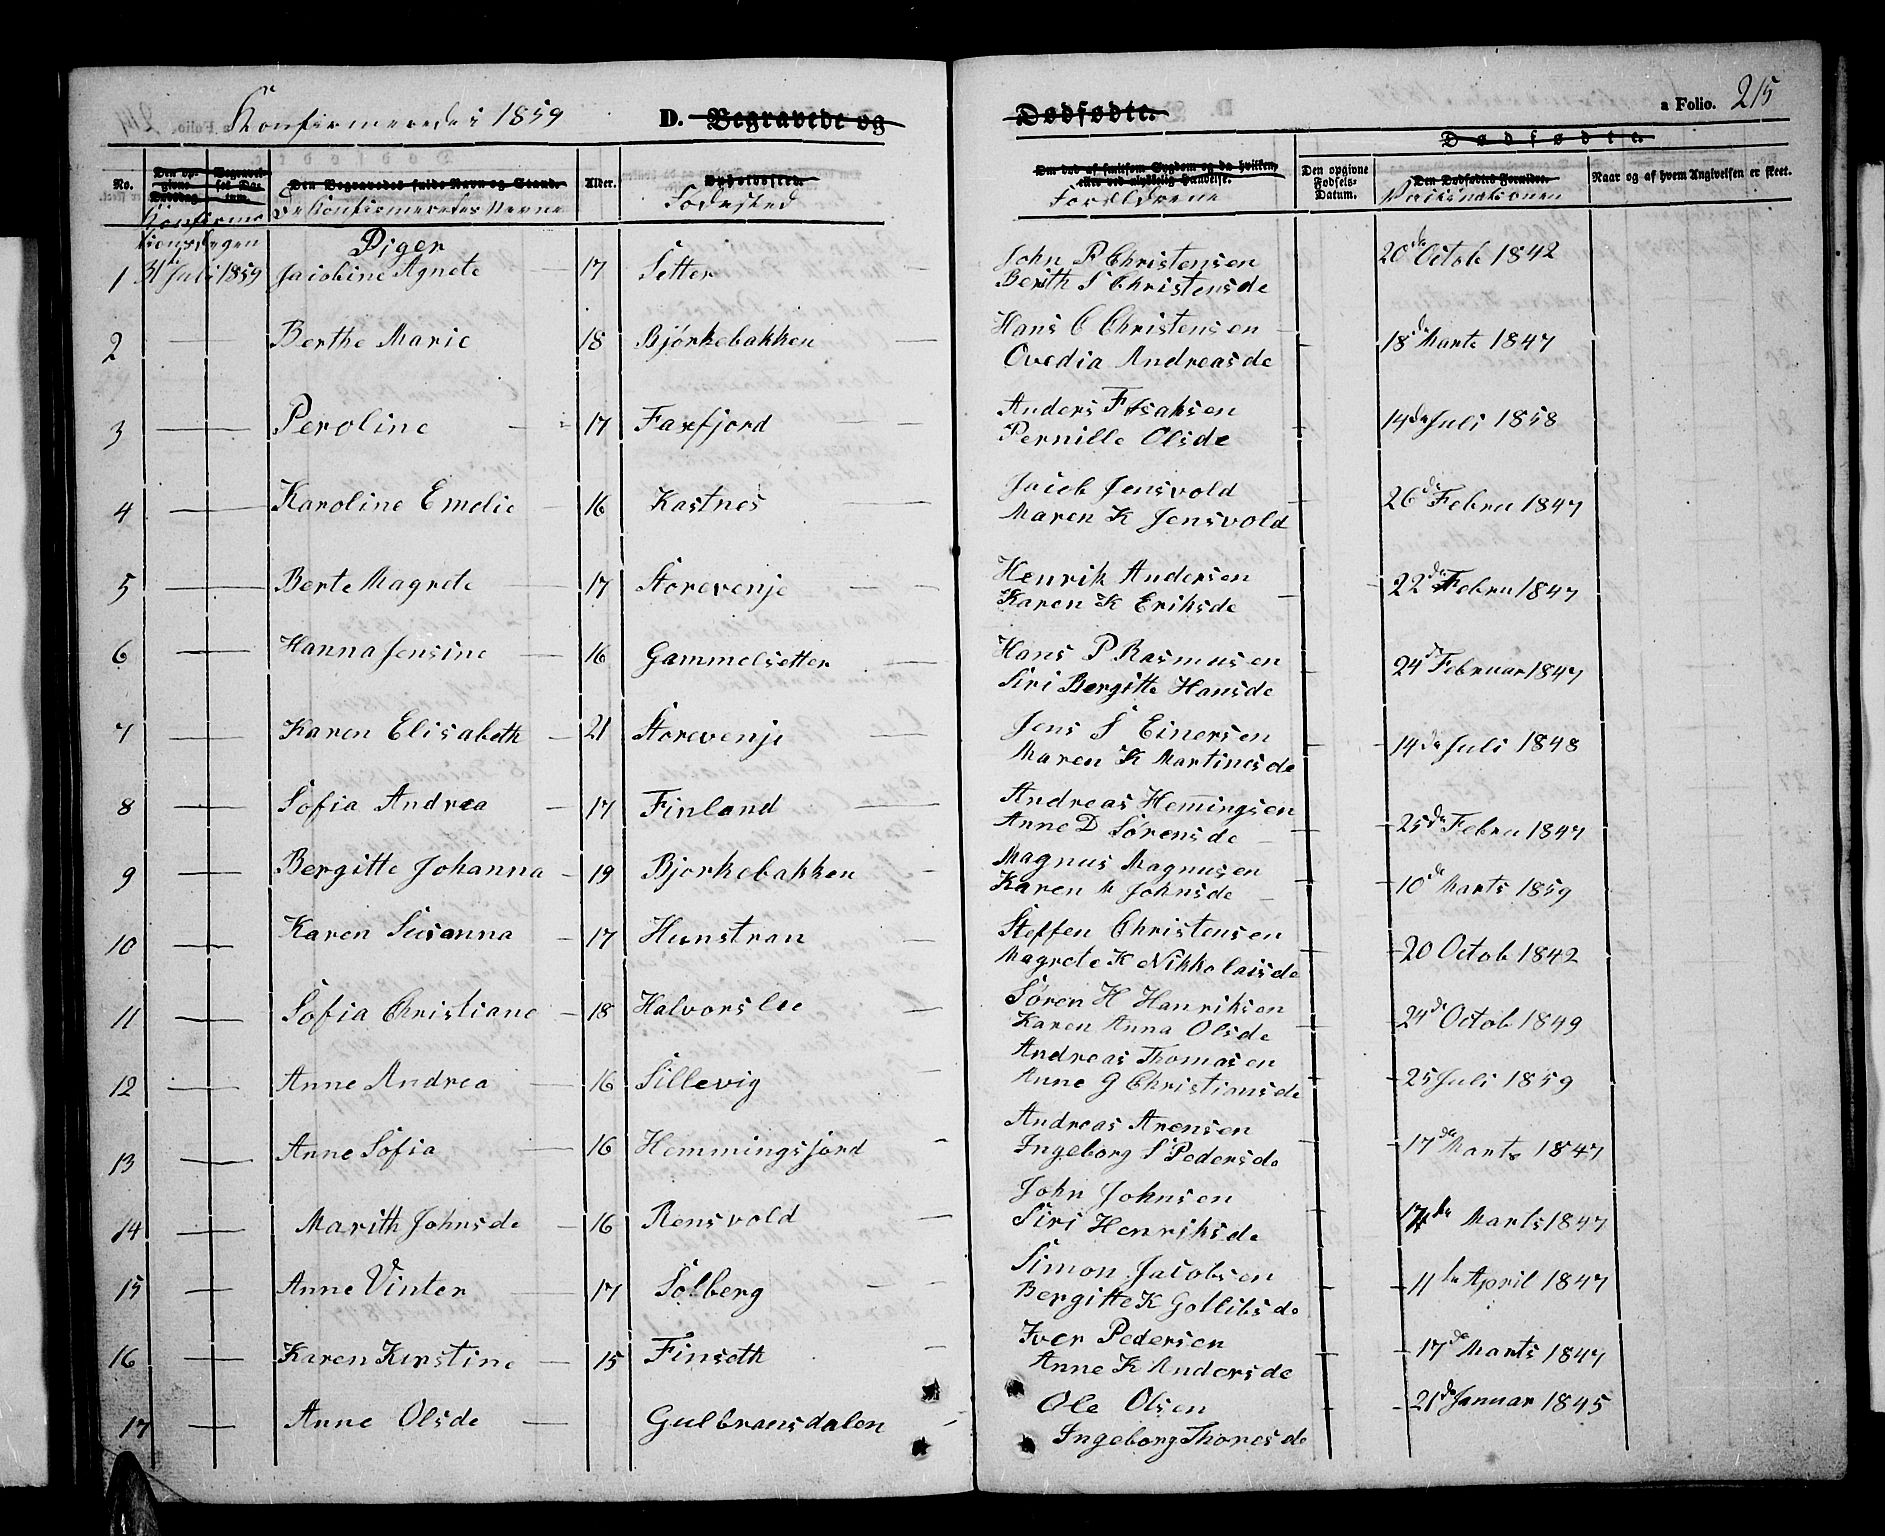 Konfirmerede i 1859 D. Begravede og Dødfødte. a Folio. 215
Dødfødte.
No. Den opgivne Dødsdag Begravelses Datum. Den Begravedes fulde Navn og Stand. Alder. Opholdssted. Om død af smitsom Sygdom og da hvilken, eller ved ulykkelig Hændelse. Den opgivne Fødsels-Datum. Den Dødfødtes Forældre. Naar og af hvem Angivelsen er skeet.
Konfirmationsdagen De Konfirmeredes Navne Fødested Foreldrene Vaksinationen
Piger
1 31 Juli 1859 Jacobine Agnete 17 Setter John P Christensen 20de Octob 1842
Berith S Christensde
2 Berthe Marie 18 Bjørkebakken Hans C Christensen 18de Marts 1847
Ovedia Andreasde
3 Peroline 17 Faxfjord Anders F Isaksen 14de Juli 1858
Pernille Olsde
4 Karoline Emelie 16 Kastnes Jacob Jensvold 26de Febru 1847
Maren K Jensvold
5 Berte Magrete 17 Storevenje Henrik Andersen 22de Febru 1847
Karen K Eriksde
6 Hanna Jensine 16 Gammelsetter Hans P Rasmusen 24de Februar 1847
Siri Bergitte Hansde
7 Karen Elisabeth 21 Storevenje Jens S Einersen 14de Juli 1848
Maren K Martinesde
8 Sofia Andrea 17 Finland Andreas Hemingsen 25de Febru 1847
Anne D Sørensde
9 Bergitte Johanna 19 Bjorkebakken Magnus Magnusen 10de Marts 1859
Karen M Johnsde
10 Karen Susanna 17 Hunstran Steffen Christensen 20 Octob 1842
Magrete K Nikkolaisde
11 Sofia Christiane 18 Halvorslee Søren H Hanriksen 24de Octob 1849
Karen Anna Olsde
12 Anne Andrea 16 Sillevig Andreas Thomasen 25 Juli 1859
Anne G Christiansde
13 Anne Sofia 16 Hemmingsjord Andreas Arensen 17de Marts 1847
Ingeborg S Pedersde
14 Marith Johnsde 16 Rensvold John Johnsen 17de Marts 1847
Siri Henriksde
15 Anne Vinter 17 Solberg Simon Jacobsen 11te April 1847
Bergitte K Gollibsde
16 Karen Kirstine 15 Finseth Iver Pedersen 17de Marts 1847
Anne K Andersde
17 Anne Olsde Gulbransdalen Ole Olsen 21de Januar 1845
Ingeborg Thoresde